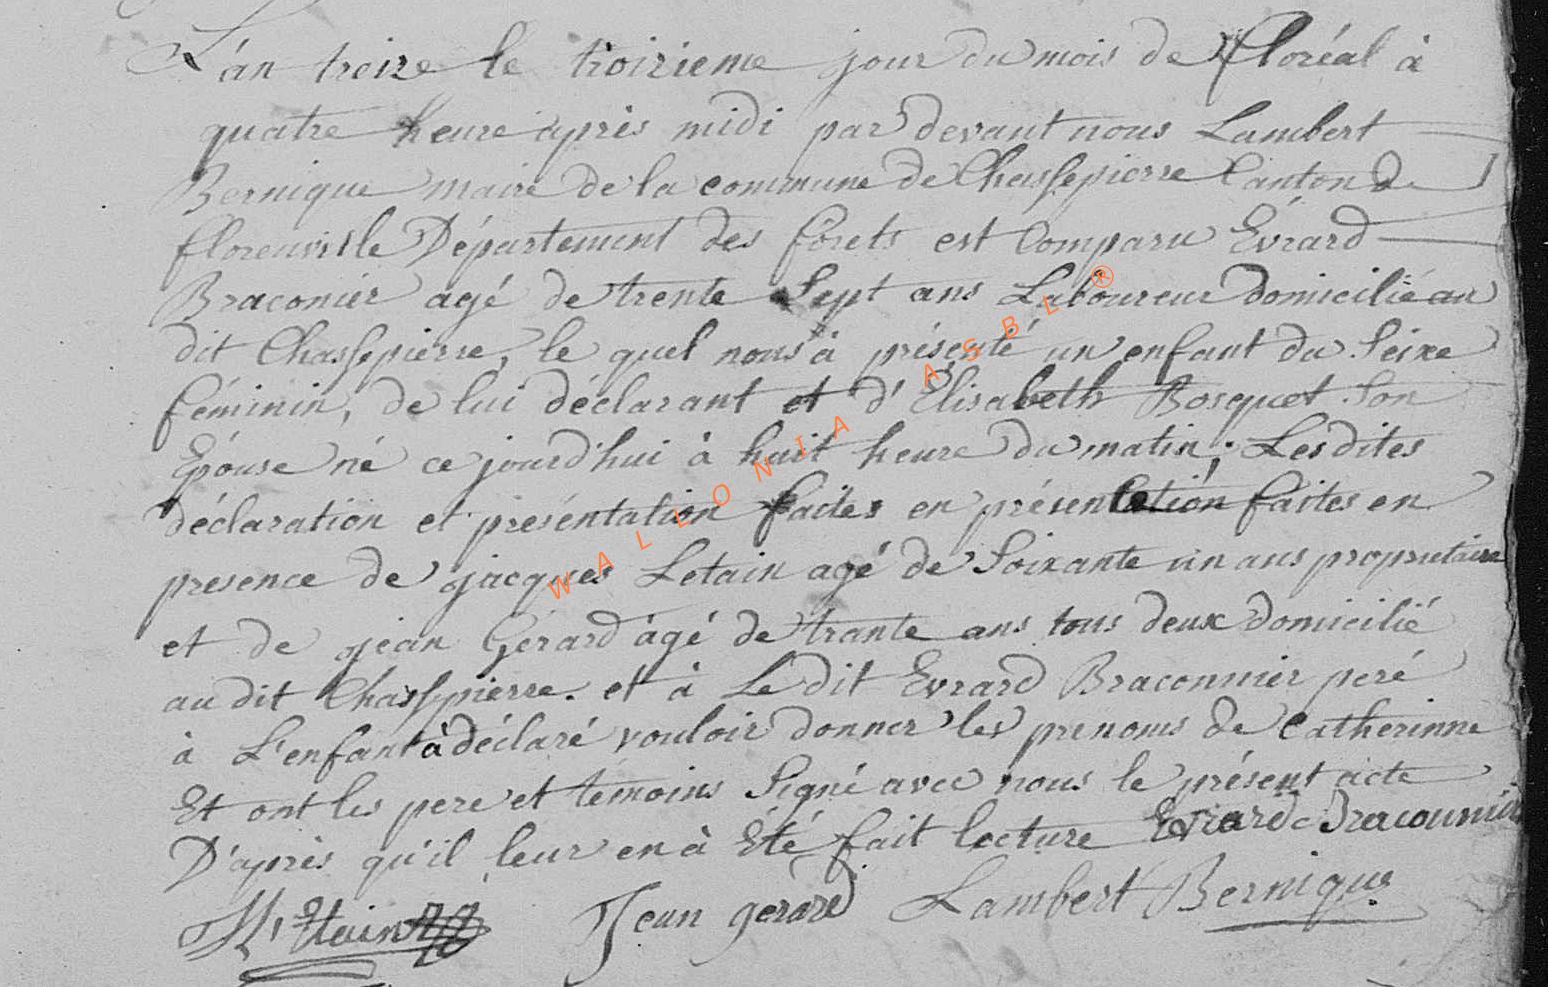 L'án treize le troizieme jour du mois de floréal à
quatre heure après midi par devant nous Lambert
Bernique maire de la commune de Chassepierre Canton de
florenville Département des forets est Comparu Évrard
Braconier agé de trente Sept ans Laboureur domicilié au
dit Chassepierre, le quel nous à présenté un enfant du Seixe
féminin, de lui déclarant et d'Élisabeth Bosquet Son
Épouse né ce jourd'hui à huit heure du matin; Les dites
déclaration et présentation faites en présentation faites en
presence de jacques Letain agé de Soixante un ans proprietaire
et de jean Gérard àgé de trante ans tous deux domicilié
au dit Chassepierre. et à Le dit Evrard Braconnier peré
à L'enfant à déclaré vouloir donner les prenoms de Catherinne
Et ont les pere et témoins Signé avec nous le présent acte
D'après qu'il leur en à Été fait lecture Evrard Braconnier
Etain Jean gerard Lambert Bernique
WALLONIA ASBL®